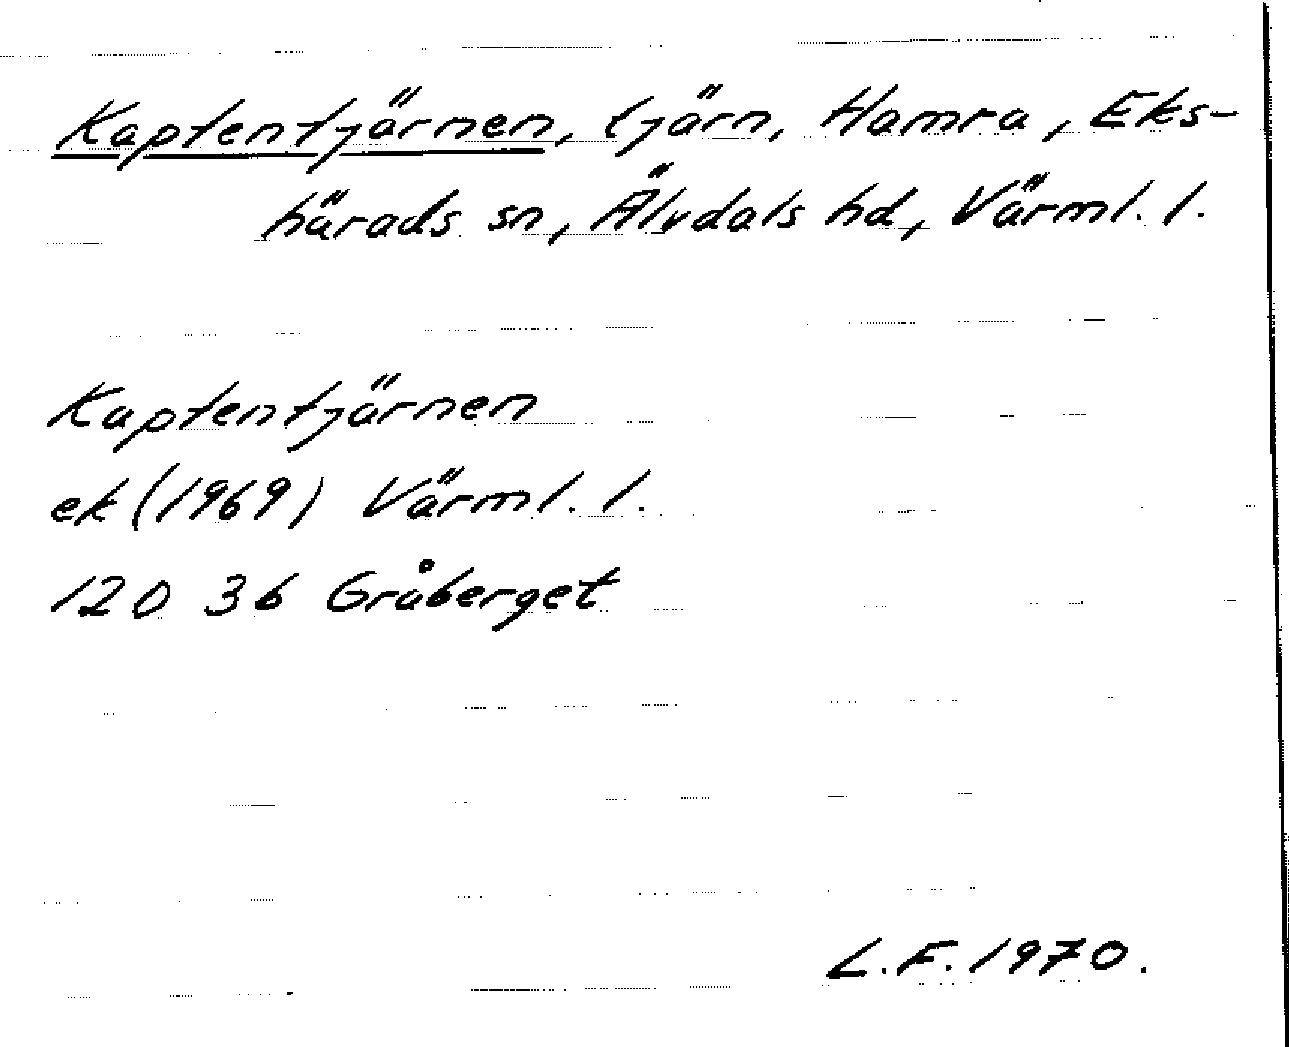 Kaptentjärnen, tjärn, Hamra, Eks-
härads sn, Älvdals hd, Värml. l.
Kaptentjärnen
ek (1969) Värml. l.
12D 3b Gråberget
L.F. 1970.